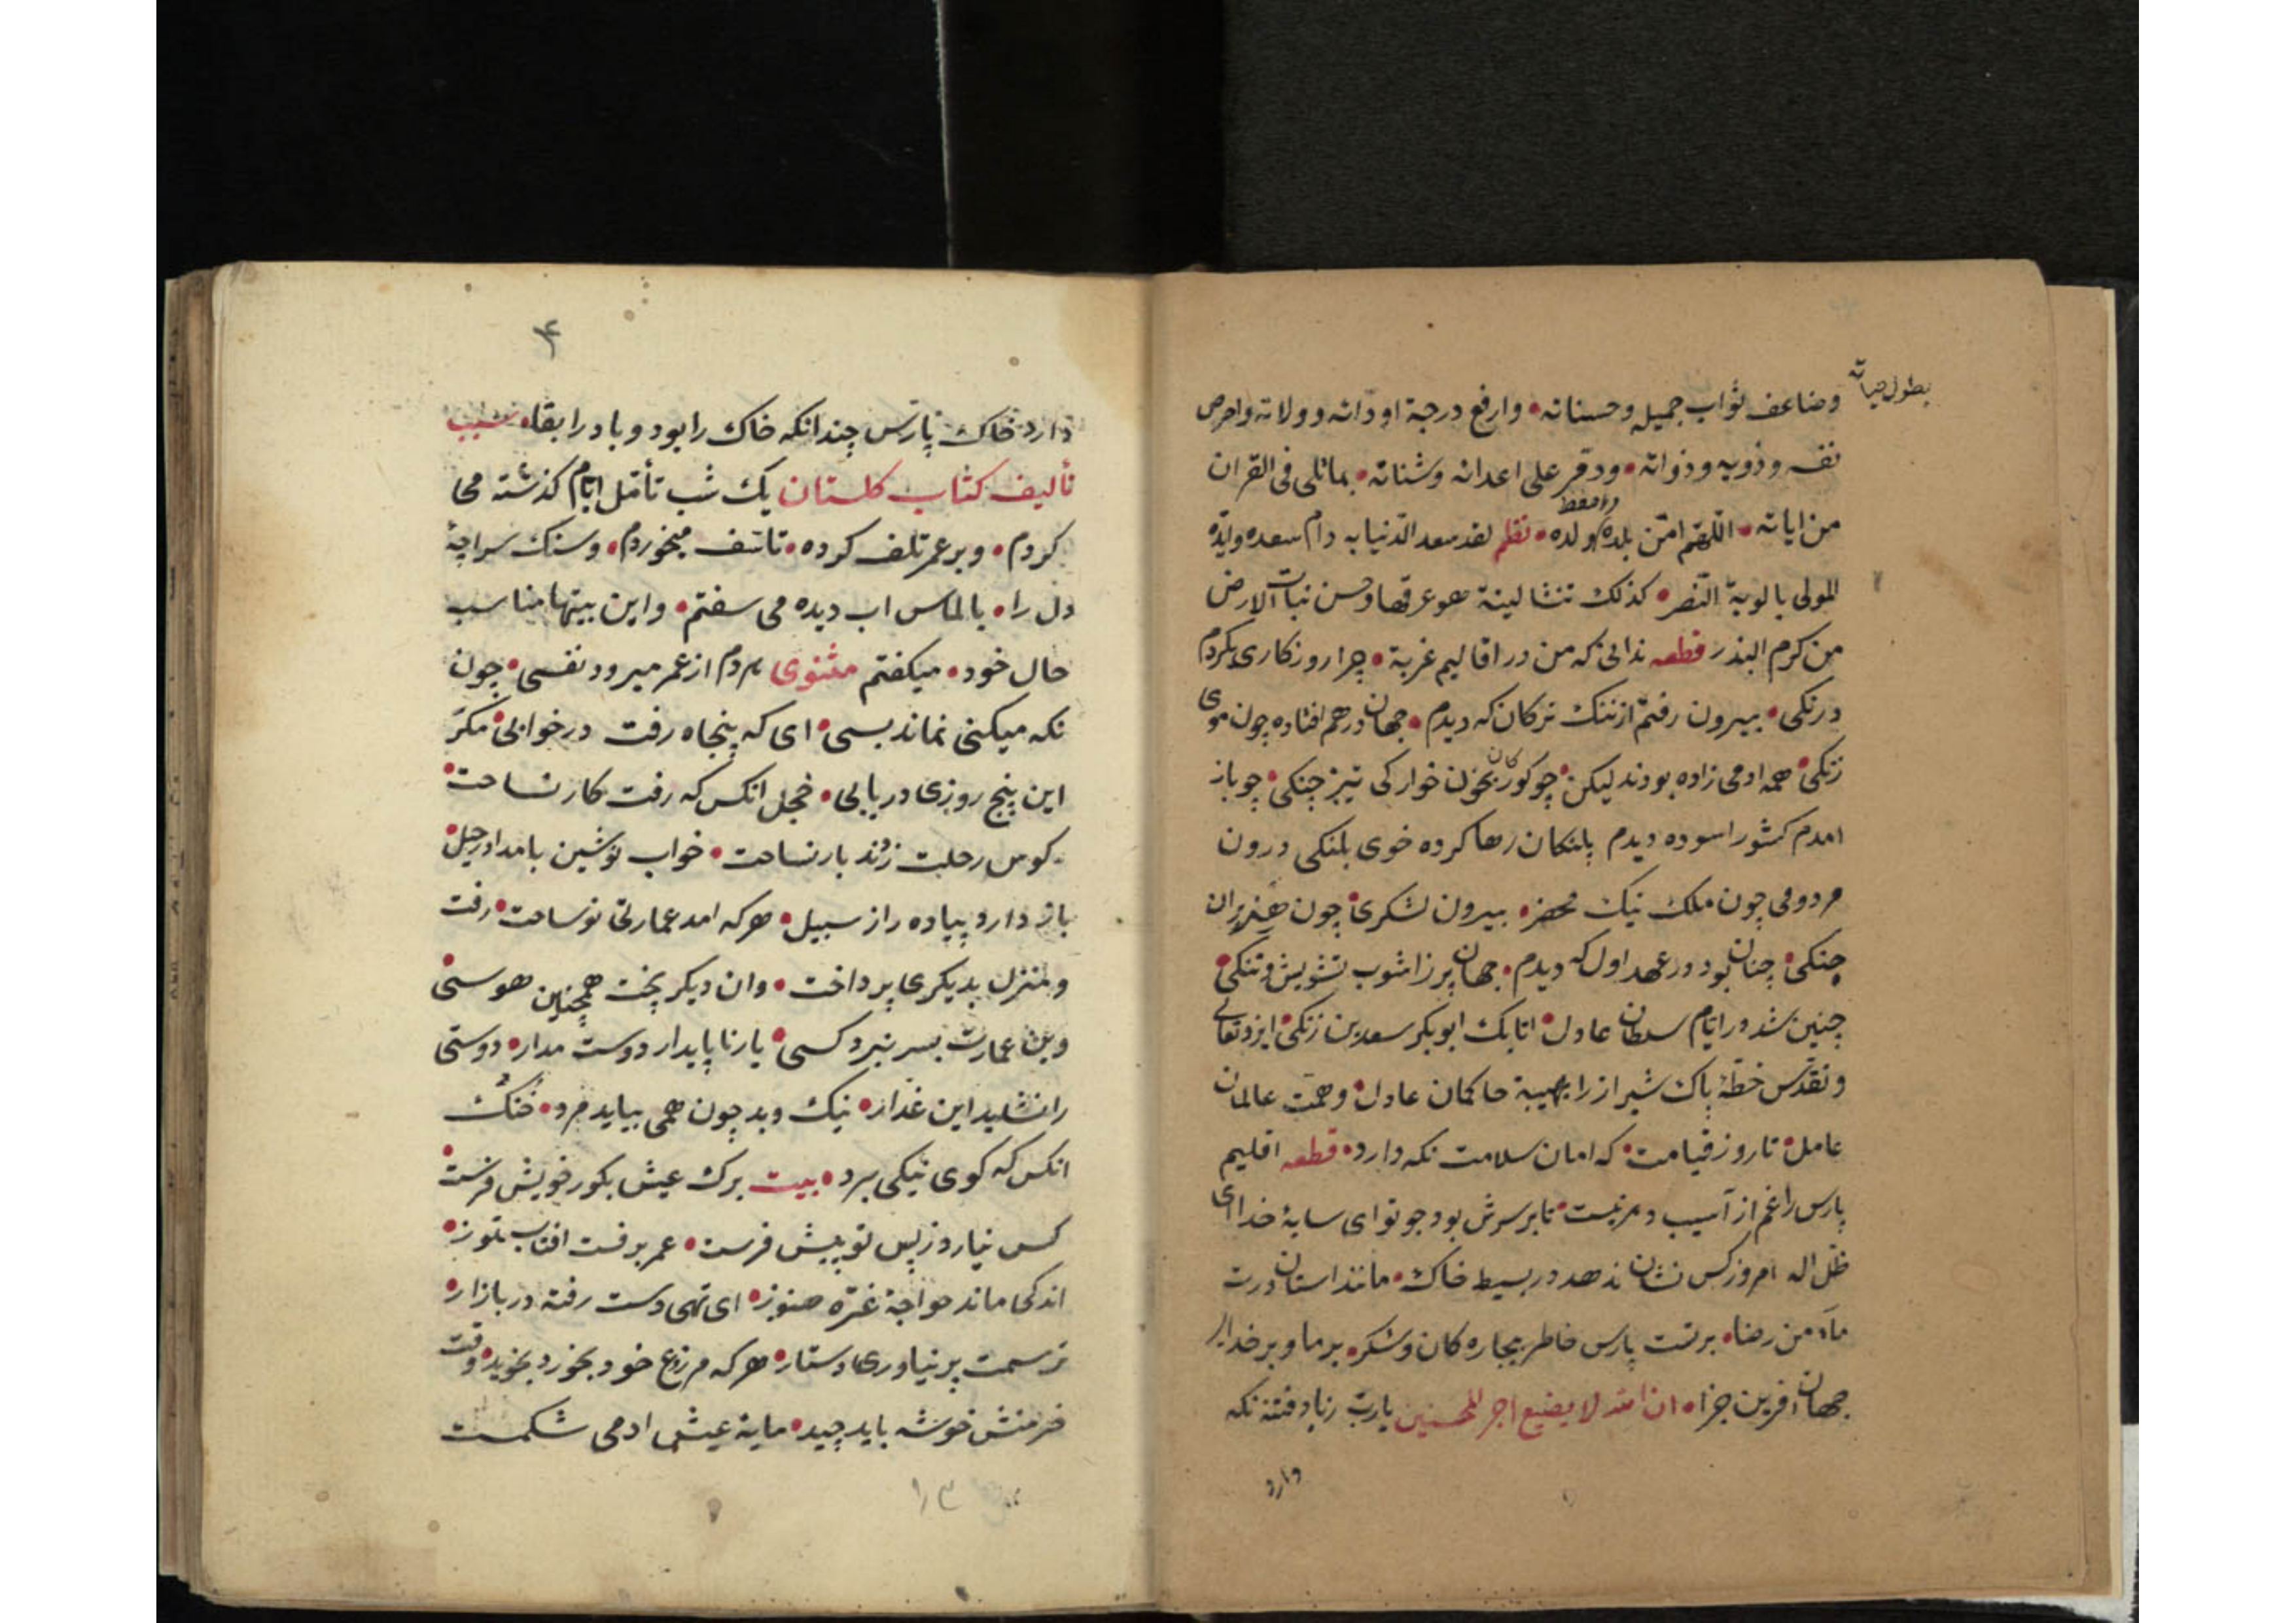 بطول حیاته
وضاعف ثواب جمیله وحسناته • وارفع درجة اودّائه وولاته واحرص
نفسه وذویه وذواته • ودمّر علی اعدائه وشناته • بماتلی فی القران
من ایاته • اللّهمّ امّن بلده واحفظ ولده • نظم لقد سعد الدّنیا به دام سعده وایّده
المولی بالویة النّصر • کذلک تنشا لینة هو عرقها وحسن نبات الارض
من کرم البذر قطعه ندانی که من در اقالیم غربة • چرا روزکاری بکردم
درنکی • بیرون رفتم از ننک ترکان که دیدم • جهان درهم افتاده چون موی
زنکی • همه ادمی زاده بودند لیکن • چو کورکان بخون خوارکی تیز چنکی • چو باز
امدم کشور اسوده دیدم پلنکان رها کرده خوی پلنکی درون
مردومی چون ملک نیک محضر • بیرون لشکری • چون هژبران
جنکی • چنان بود در عهد اول که دیدم • جهان پر ز اشوب تشویش و تنکی •
چنین شد در ایّام سلطان عادل • اتابک ابوبکر سعد بن زنکی • ایزد تعالی
وتقدّس خطّهٔ پاک شیراز را بهیبة حاکمان عادل • وهمّت عالمان
عامل • تا روز قیامت • که امان سلامت نکه دارد • قطعه اقلیم
پارس را غم از آسیب دهر نیست • تا بر سرش بود چو توای سایهٔ خدای
ظلّ اله امروز کس نشان ندهد در بسیط خاک • مانند استان درت
مأمن رضا • برتست پارس خاطر بیجاره کان وشکر • بر ما و بر خدای
جهان افرین جزا • انّ الله لا یضیع اجر المحسنین یاربّ زباد فتنه نکه
دارد
۴
دارد خاک پارس چندانکه خاک را بود و باد را بقاه سبب
تألیف کتاب کلستان یک شب تأمّل ایّام کذشته می
کردم • و بر عمر تلف کرده • تاسّف میخوردم • وسنک سراچهٔ
دل را • بالماس اب دیده می سفتم • واین بیتها مناسب
حال خود • میکفتم مثنوی هردم از عمر میرود نفسی • چون
نکه میکنی نماند بسی • ای که پنجاه رفت در خوابی • مکرّ
این پنج روزی دریابی • خجل انکس که رفت کار نساخت •
کوس رحلت زدند بار نساخت • خواب نوشین بامداد رحیل •
باز دارد پیاده را ز سبیل • هرکه امد عمارتی نو ساخت • رفت
ومنزل بدیکری پرداخت • وان دیکر پخت همچنین هوسی •
وین عمارت بسر نبرد کسی • یار ناپایدار دوست مدار • دوستی
را نشاید این غدّار • نیک وبد چون همی بباید مرد • خُنُک
انکس که کوی نیکی برد • بیت برک عیش بکور خویش فرست •
کس نیارد ز پس تو پیش فرست • عمر برفست افتاب تموز •
اندکی ماند خواجة غرّه هنوز • ای تهی دست رفته در بازار •
ترسمت پر نیاوری دستار • هرکه مزرع خود بخورد بخوید • وقت
خرمنش خوشه باید چید • مایة عیش ادمی شکمست
۱۳